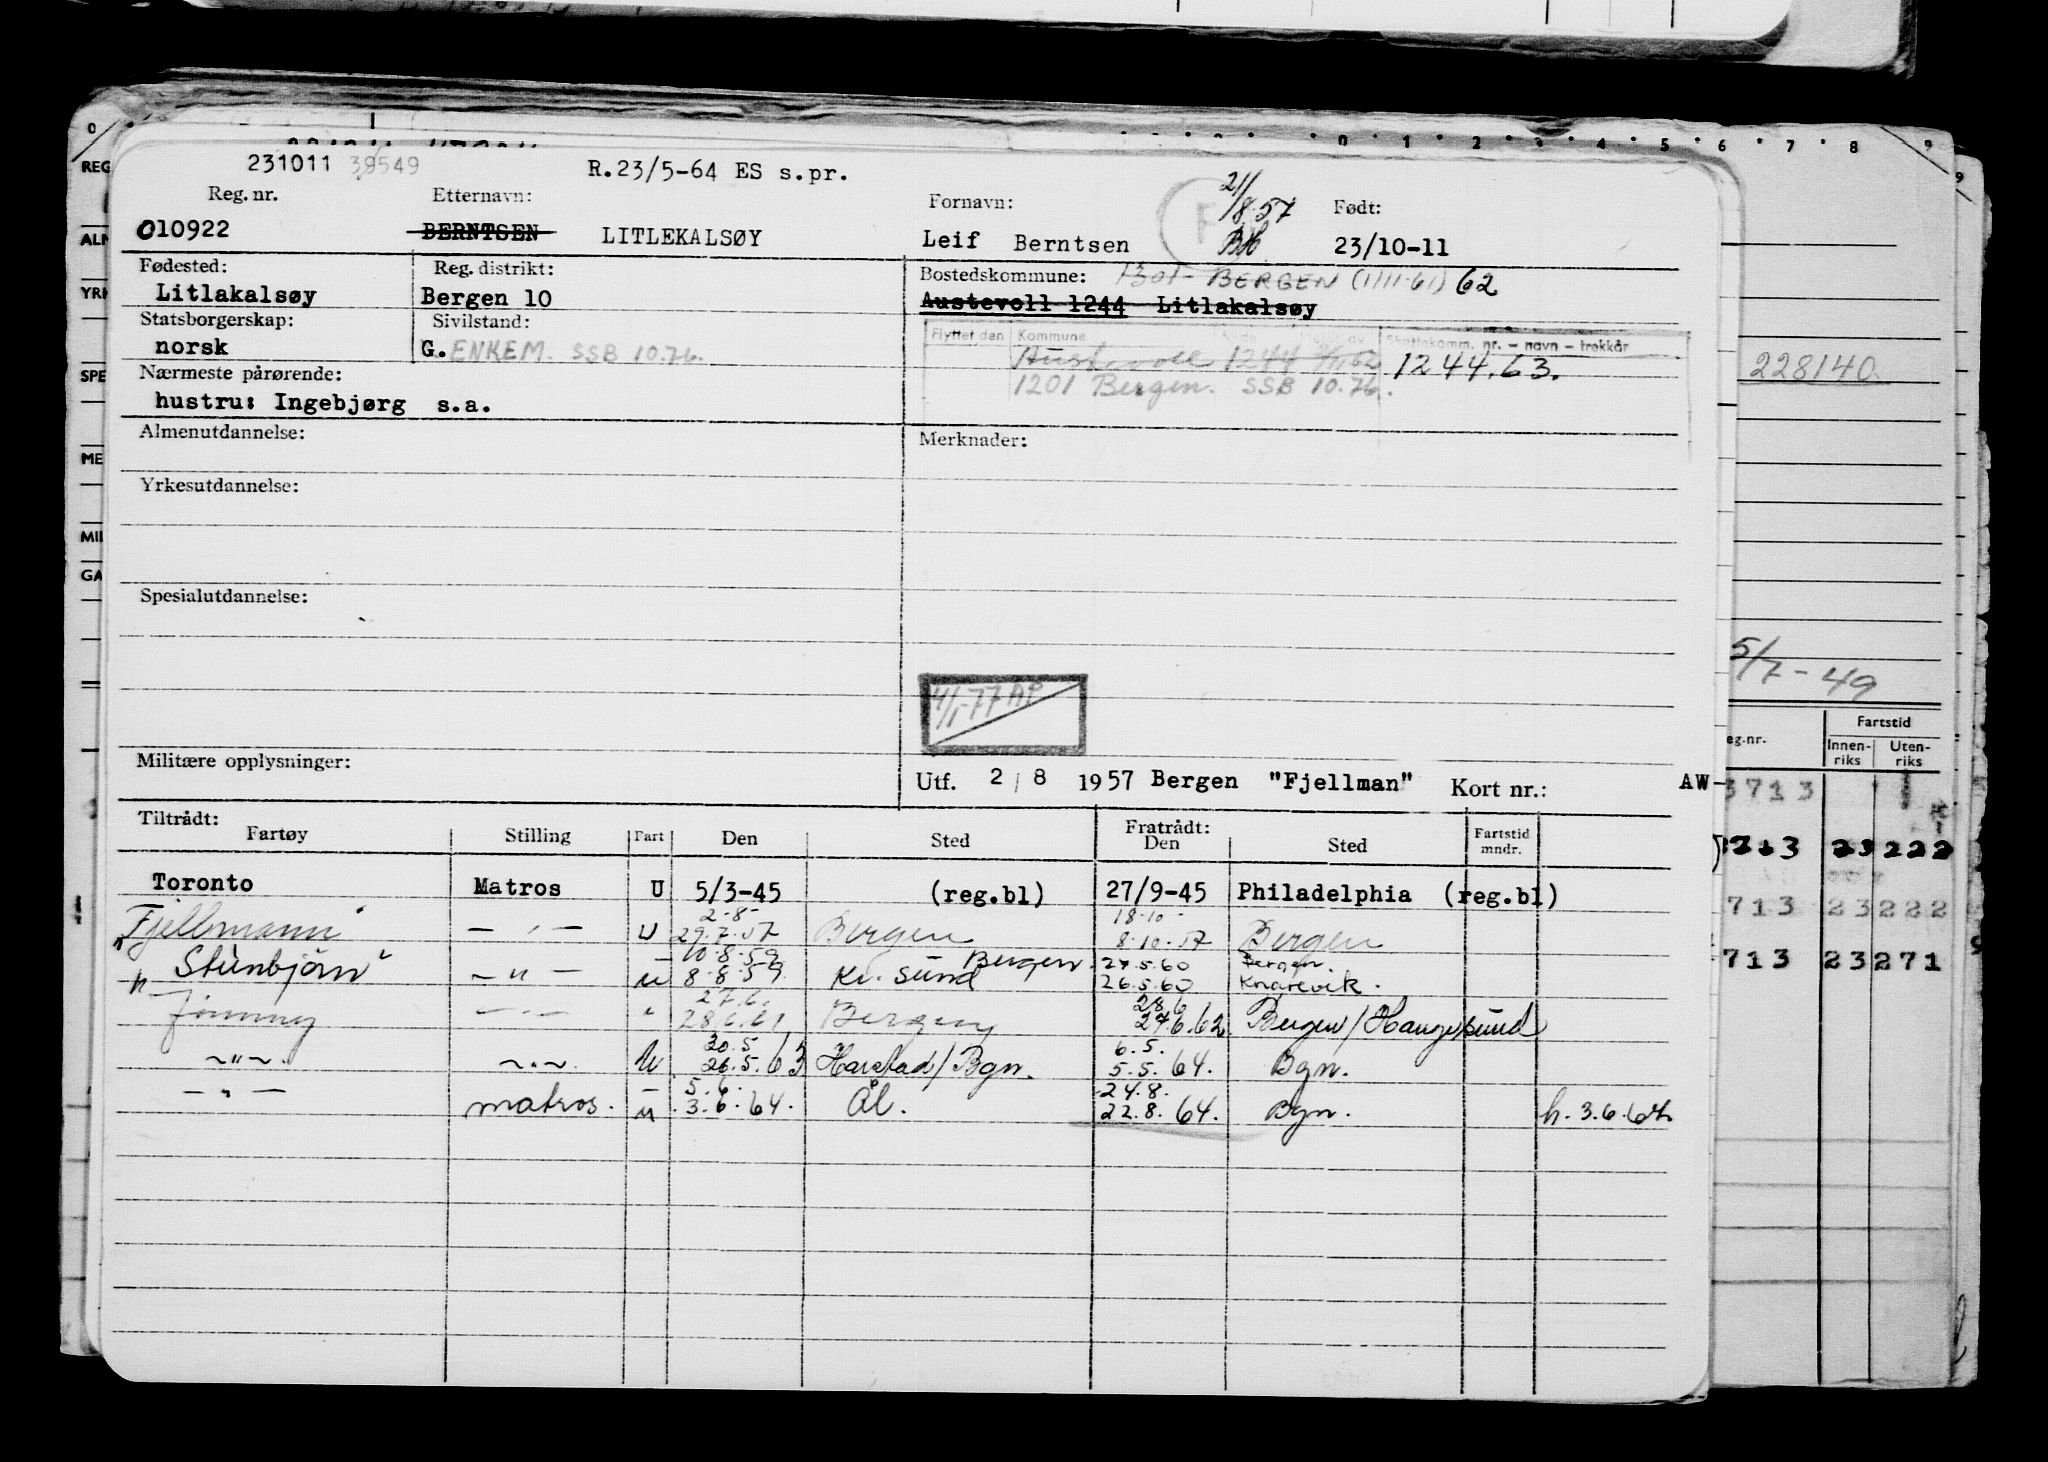 0 1 2 3 4 5 6 7 8 9
REG
231011 39549 R.23/5-64 ES s.pr.
Reg. nr. Etternavn: Fornavn: 21/8.57 Født:
010922 BERNTSEN LITLEKALSØY Leif Berntsen F BH 23/10-11
ALM
Fødested: Reg. distrikt: Bostedskommune: 1301 - BERGEN (1/11-61) 62
Litlakalsøy Bergen 10 Austevoll 1244 Litlakalsøy
YRK
Statsborgerskap: Sivilstand: Flyttet den Kommune Skattekomm. nr. - navn - trekkår
norsk G. ENKEM. SSB 10.76. Austevoll 1244 1244.63.
228140
SPE
Nærmeste pårørende: 1201 Bergen. SSB 10.76.
hustru: Ingebjørg s.a.
Almenutdannelse: Merknader:
ME
Yrkesutdannelse:
MIL
GA
Spesialutdannelse:
5/7-49
4/1-77 AP
Militære opplysninger:
Utf. 2/8 1957 Bergen "Fjellman" Kort nr.: AW-
eg.nr. Fartstid
Innen-riks Uten-riks
Tiltrådt: Fratrådt:
Fartøy Stilling Fart Den Sted Den Sted Fartstid mndr.
3713
Toronto Matros U 5/3-45 (reg.bl) 27/9-45 Philadelphia (reg.bl)
2-8- 18.10-
Fjellmann — " — U 29.7.57 Bergen 8.10.57 Bergen
713 23 222
10.8.59 Bergen. 27.5.60 Bergen.
" Steinbjörn " — " — u 8.8.59 Kr. sund 26.5.60 Knarevik.
713 23 271
27.6. 28.6
" Jimmy — " — " 28.6.61 Bergen 27.6.62 Bergen/Haugesund
30.5 6.5.
— " — — " — U 26.5.63 Harstad/Bgn. 5.5.64. Bgn.
5.6. 24.8.
— " — matros. u 3.6.64. Ål. 22.8.64. Bgn. h. 3.6.64